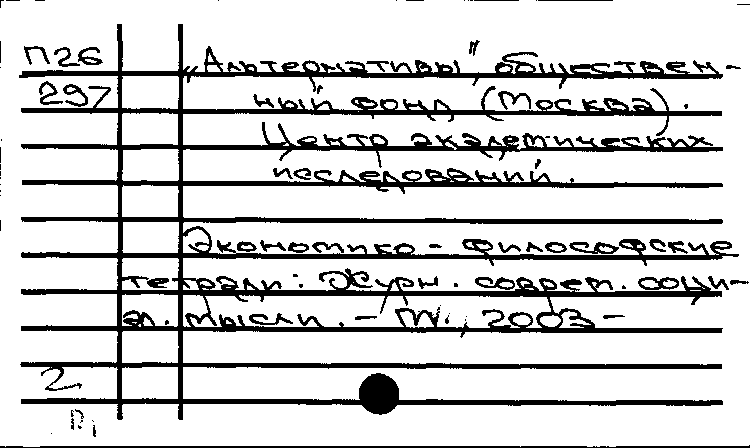 П26 „Альтернативы", обществен-
297 ный фонд (Москва).
Центр академических
исследований.
Экономико-философские
тетради: Журн. соврем. соци-
ал. мысли. – М., 2003 –
2